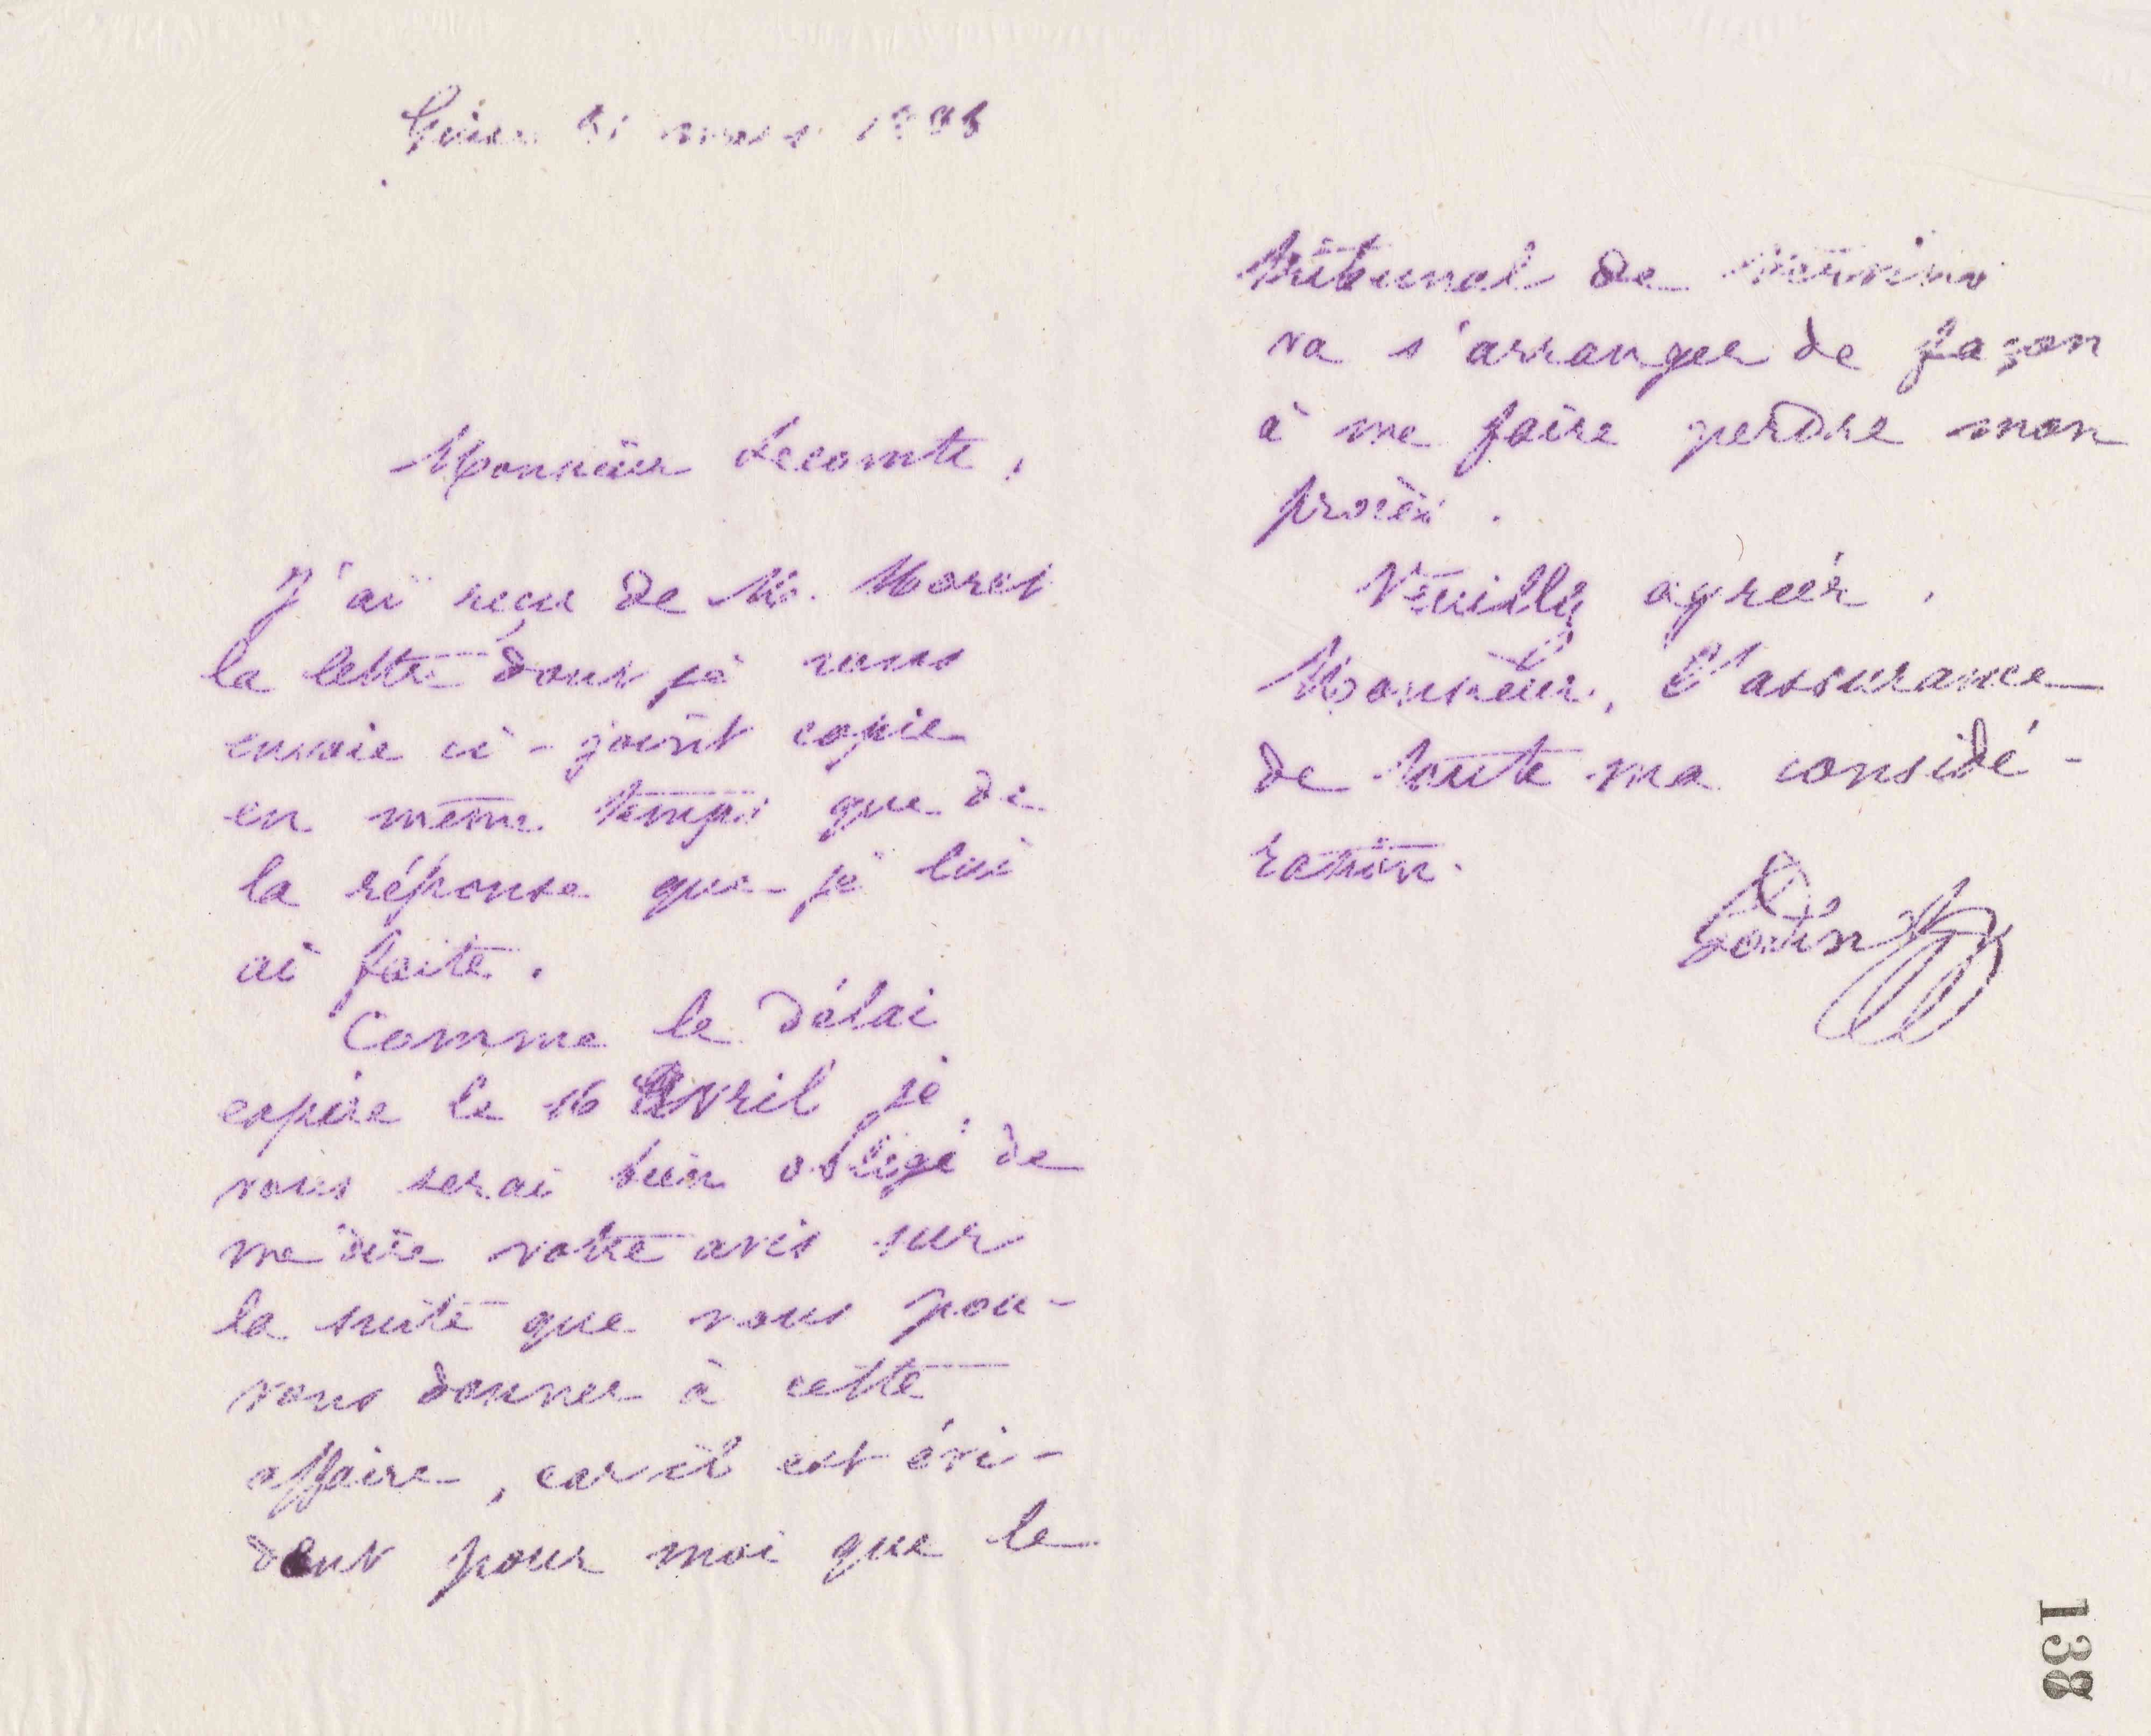 Guise 31 mars 188
Monsieur Lecomte,
J'ai reçu de M. Moret
la lettre dont je vous
envoie ci-joint copie
en même temps que de
la réponse que je lui
ai faite.
Comme le délai
expire le 16 Avril je
vous serai bien obligé de
me dire votre avis sur
la suite que nous pou-
vons donner à cette
affaire, car il est évi-
dent pour moi que le
tribunal de Vervins
va s'arranger de façon
à me faire perdre mon
procès.
Veuillez agréer,
Monsieur, l'assurance
de toute ma considé-
ration.
Godin
138